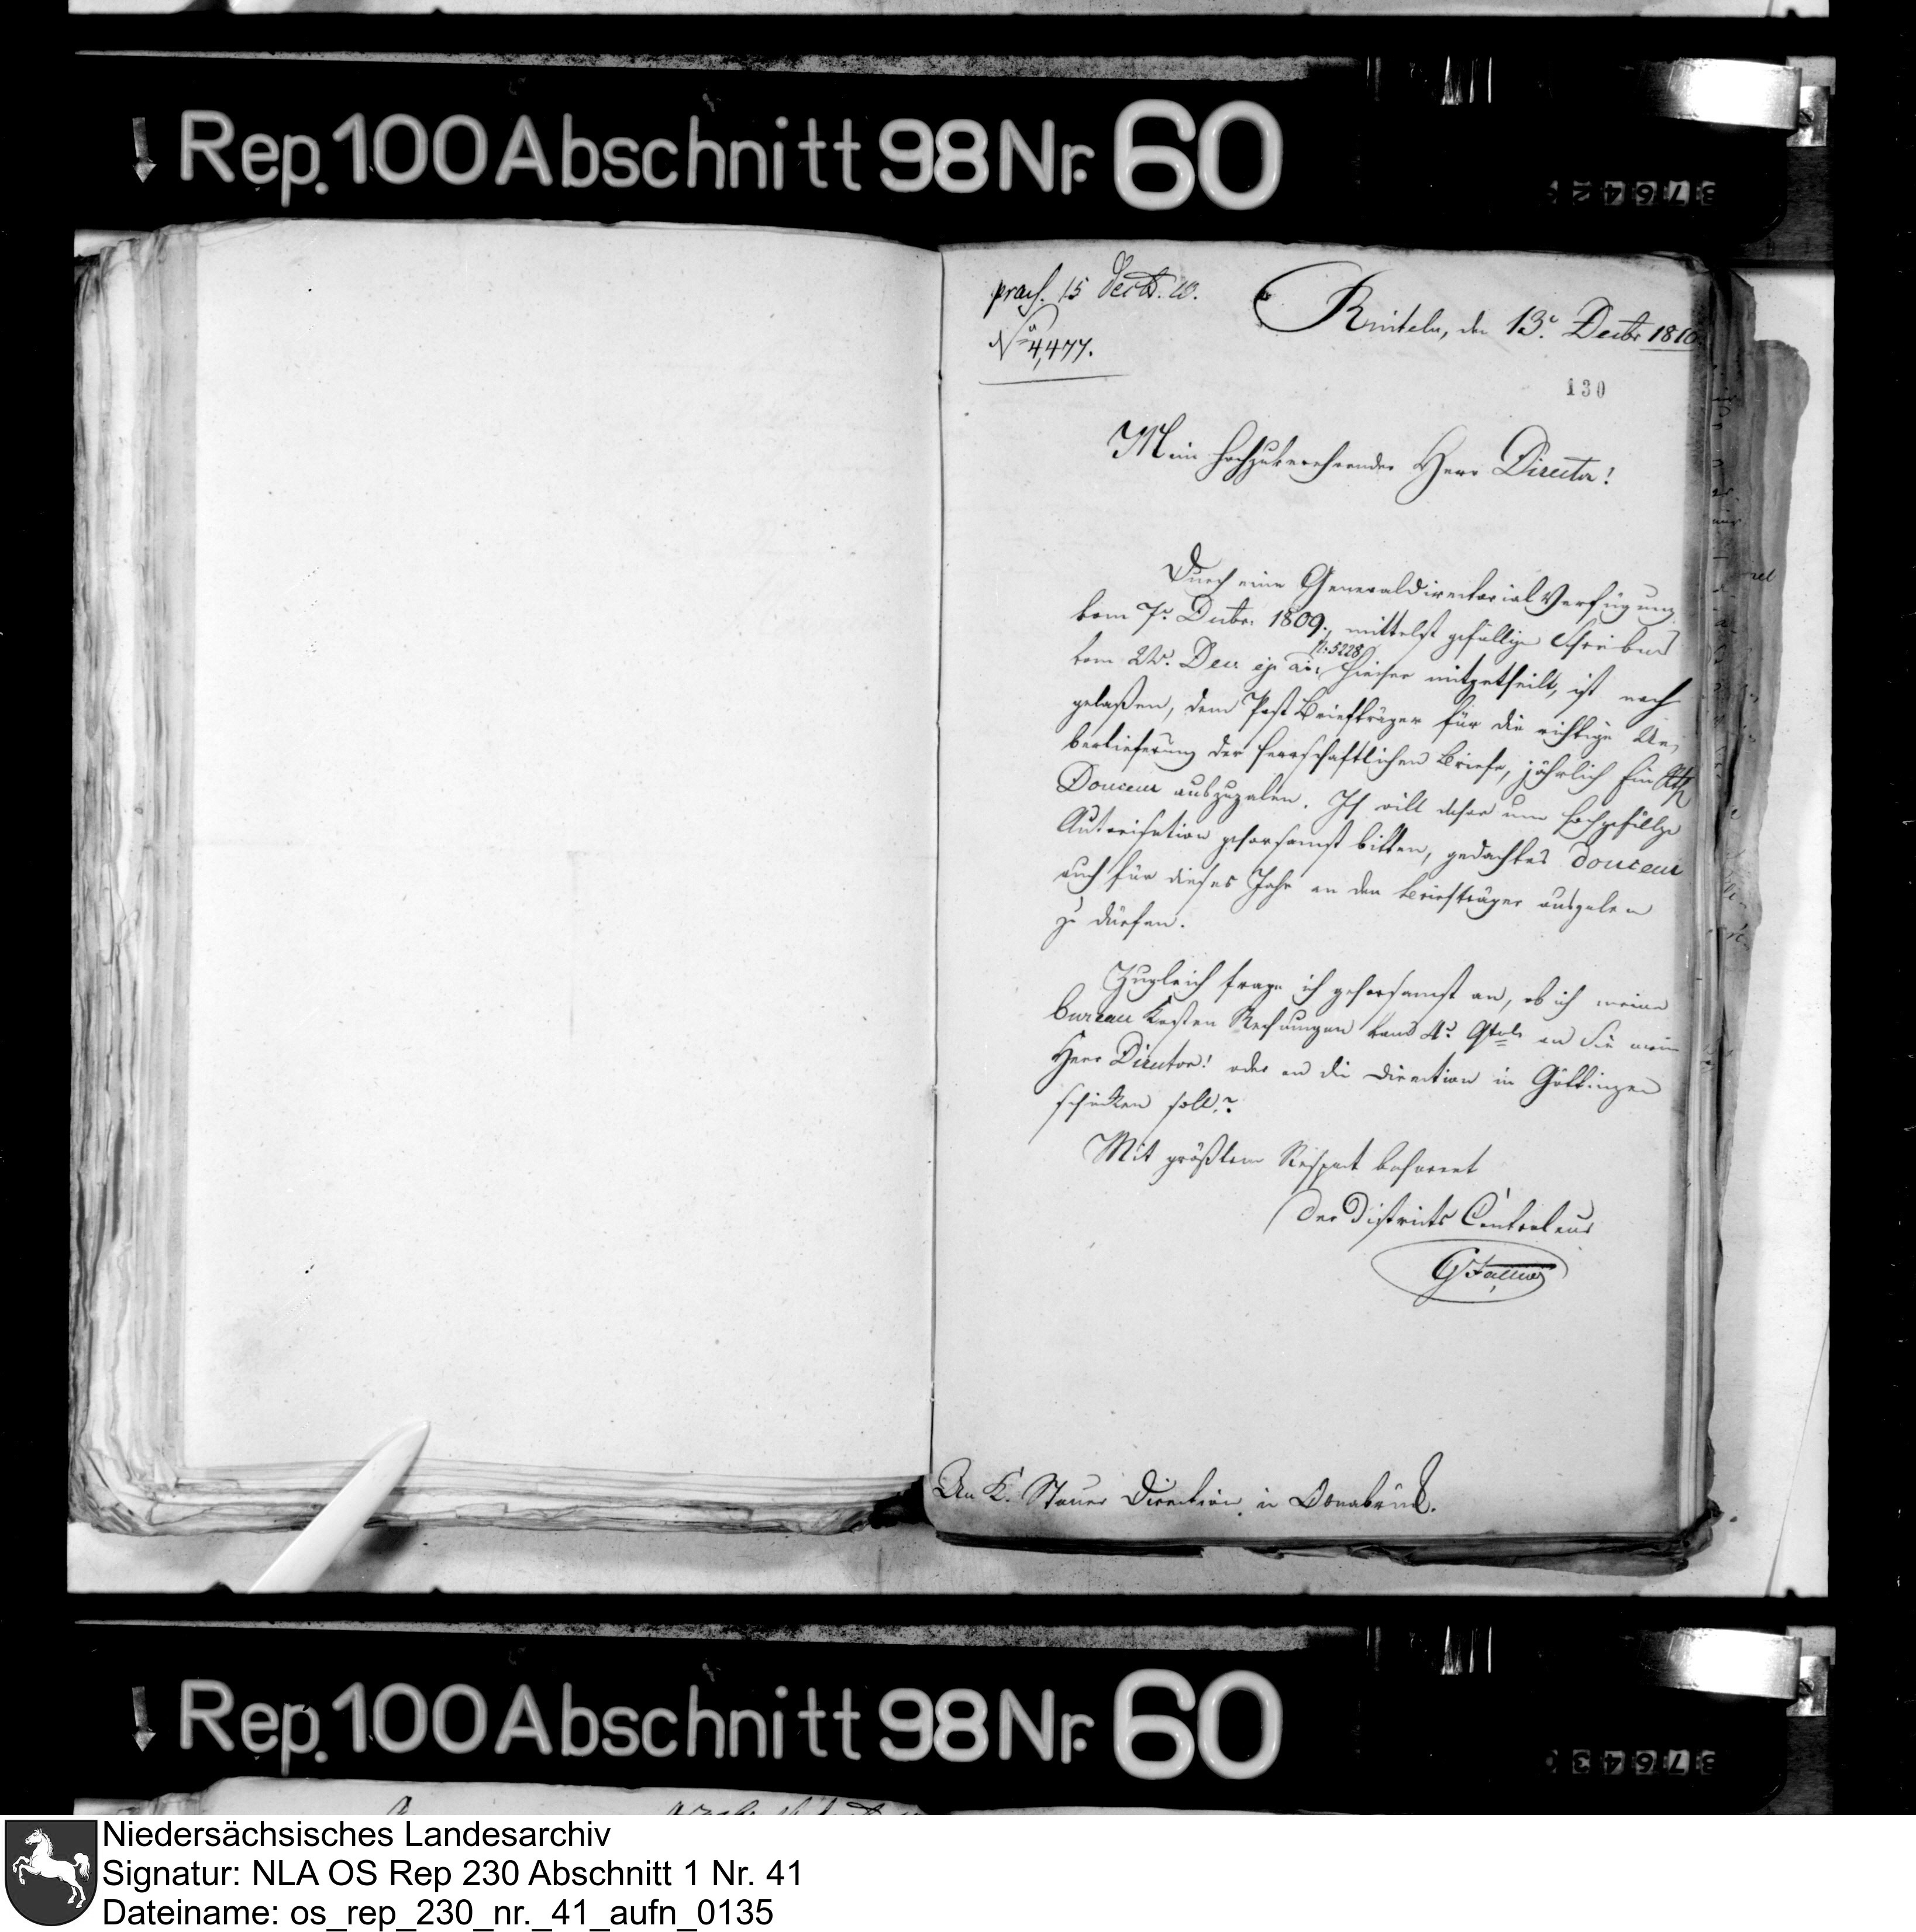 Rep. 100 Abschnitt 98 Nr. 60
praes. 15 Decbr. 10.
No 4,477.
Rinteln, den 13t. Decbr 1810
130
Mein hochzuverehrender Herr Director!
Durch eine Generaldirectorial Verfügung
vom 7t. Decbr. 1809., mittelst gefälligen Schreibens
No. 5228
vom Dec ej. a. hieher mitgetheilt, ist nach
gelaßen, dem Post Briefträger für die richtige Ue,
berlieferung der herrschaftlichen Briefe, jährlich Ein Rth
Douceur auszuzalen. Ich will daher um hochgefällige
Autorisation gehorsamst bitten, gedachtes douceur
auch für dieses Jahr an den Briefträger auszalen
zu dürfen.
Zugleich frage ich gehorsamst an, ob ich meine
Bureau Kosten Rechnungen 4t. Qtals an Sie mein
Herr Director! oder an die Direction in Göttingen
schicken soll?
Mit größtem Respect beharret
Der Districts Controleur
An K. Steuer Direction in Osnabrück.
Rep. 100 Abschnitt 98 Nr. 60
Niedersächsisches Landesarchiv
Signatur: NLA OS Rep 230 Abschnitt 1 Nr. 41
Dateiname: os_rep_230_nr._41_aufn_0135